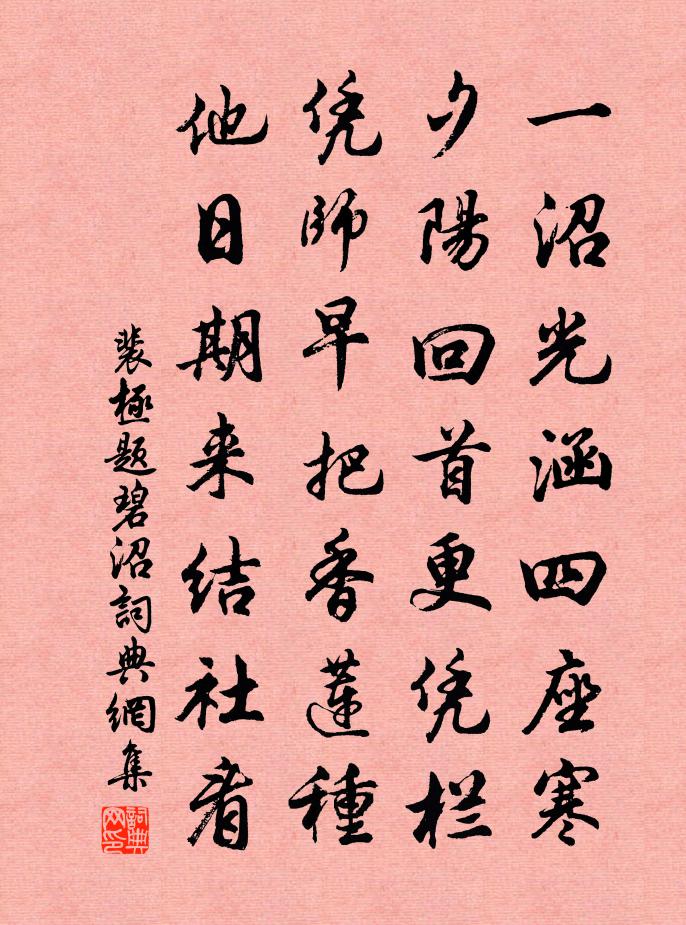 一沼光涵四座寒
夕陽回首更凭栏
凭師早把香蓮種
他日期来结社看
裴極题碧沼詞典網集
詞典网印